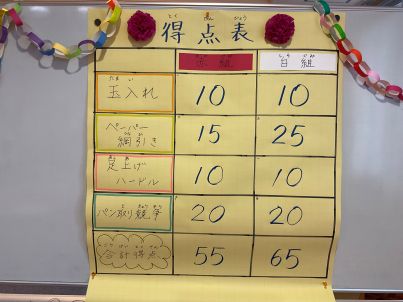 得点表
赤組 白組
玉入れ 10 10
ペーパー
綱引き 15 25
足上げ
ハードル 10 10
パン取り競争 20 20
合計得点 55 65